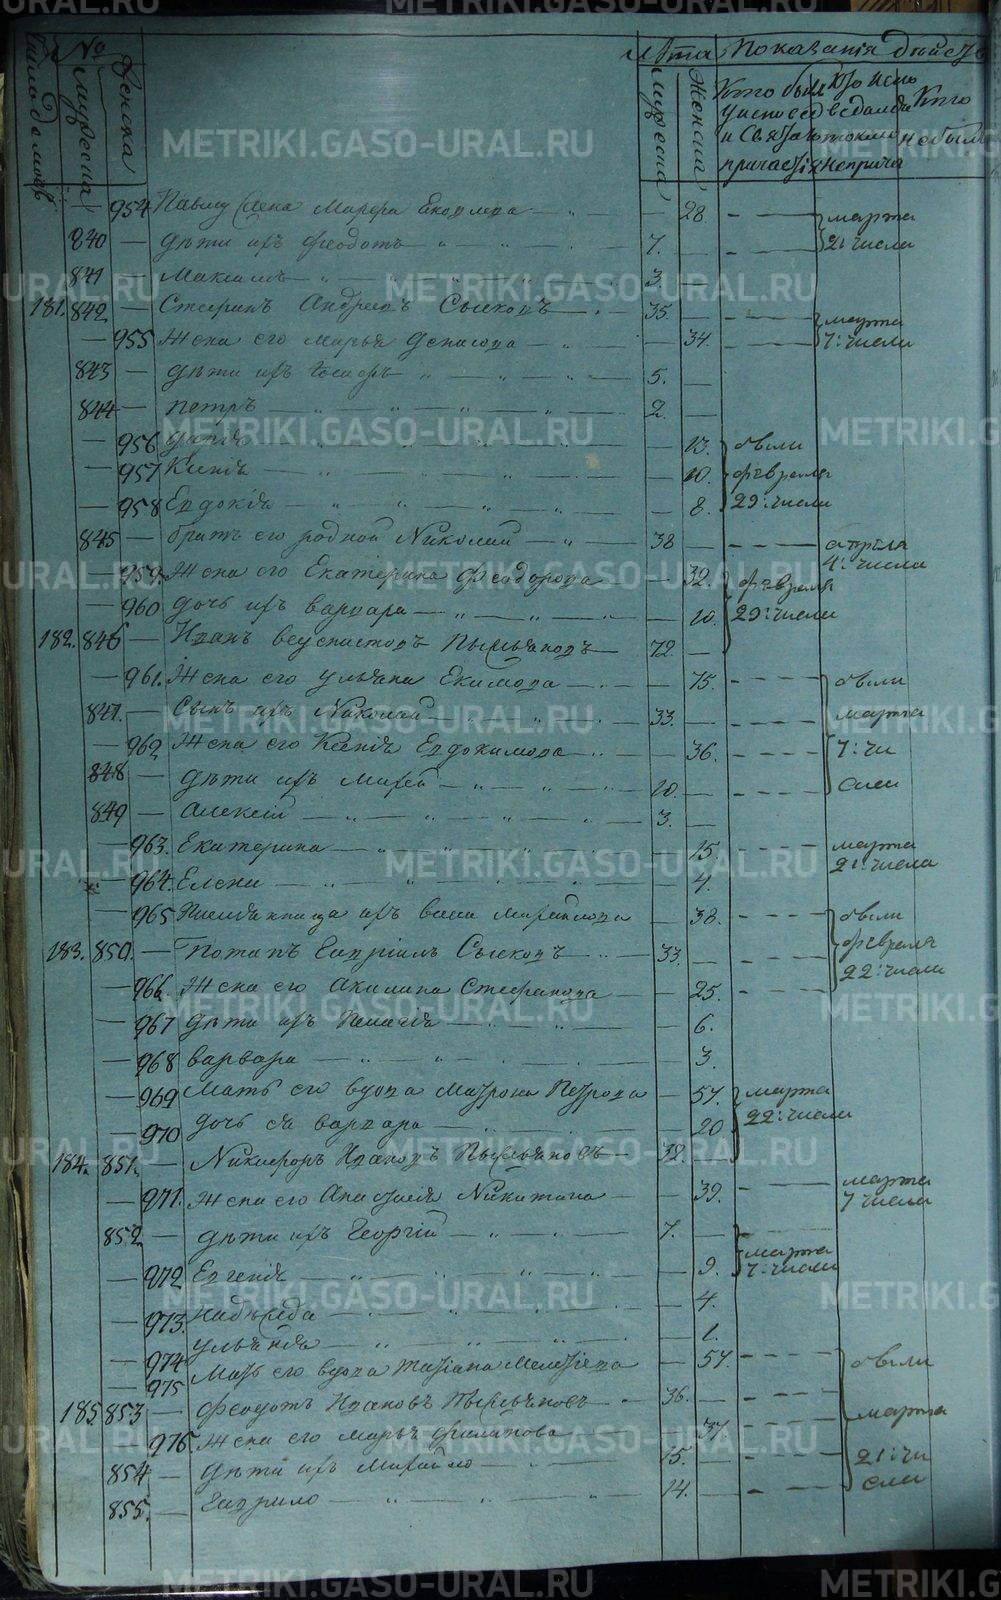 Число домов № мужеска женска лѣта мужеска женска Показанія дѣйств
Кто былъ у исповеди и Свята причастія
Кто исповедался токмо и не прича
Кто не былъ
— 954 Павлу жена Марфа Екимова — 28 марта
840 — дѣти ихъ Феодотъ 7. — 21 числа
841 — Максимъ 3. —
181. 842 — Стефанъ Андреевъ Сысковъ 35. — марта
— 955 Жена его Марья Денисова — 34. 7: числа
843 — дѣти ихъ Іосифъ 5. —
844 — Петръ 2. —
— 956 — 13. были
— 957 Ксенія — 10. февраля
— 958 Евдокія — 8. 29: числа
845 — братъ его родной Николай 38 — апреля
4: числа
— 959. Жена его Екатерина Феодорова — 32. февраля
— 960 дочь ихъ варвара — 10. 29: числа
182. 846 — Иванъ Пыльянковъ 72. —
— 961. Жена его ульяна Екимова — 75. были
847. — Сынъ ихъ Николай 33. — марта
— 962 Жена его Ксенія Евдокимова — 36. 7: чи
848 — дѣти ихъ 10. — сла
849 — Алексѣй 3. —
— 963. Екатерина — 15. марта
21: числа
— 964. Елена — 4.
— 965 Племянница ихъ Михайлова — 38. были
февраля
183. 850. — Потапъ Гавріилъ Сысковъ 33. — 22: числа
— 966. Жена его Акилина Стефанова — 25.
— 967 дѣти ихъ Пелагія — 6.
— 968 варвара — 3.
— 969 Мать его вдова Матрона Петрова — 57. марта
— 970 дочь ея варвара — 20 22: числа
184. 851. — Никифоръ Ивановъ 32. —
— 971. Жена его Анастасія Никитина — 39. марта
7 числа
852. — дѣти ихъ Георгій 7. —
— 972 Евгенія — 9. марта
7: числа
— 973. надѣжда — 4.
— 974 ульянія — 1.
— 975 Мать его вдова татіана Мелетіева — 57. были
185 853 — Феодотъ Ивановъ 36. —
— 976. Жена его марья филипова — 37 марта
854 — Дѣти ихъ Михайло 15. — 21: чи
855. Гаврило 14. — сла
METRIKI.GASO-URAL.RU